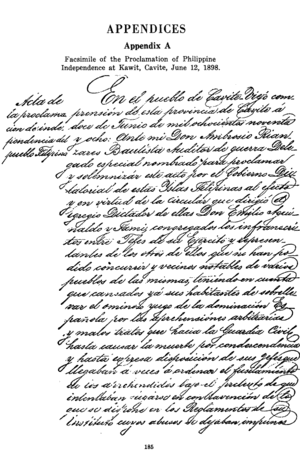 APPENDICES
Appendix A
Facsimile of the Proclamation of Philippine
Independence at Kawit, Cavite, June 12, 1898.
Acta de
la proclama
ción de inde
pendencia del
pueblo Filipino
En el pueblo de Cavite Viejo com
prensión de esta provincia de Cavite á
doce de Junio de mil ochocientos noventa
y ocho: Ante mi Don Ambrosio Rian
zares Bautista Auditor de guerra Dele
gado especial nombrado para proclamar
y solemnizar este acto por el Gobierno Dic
tatorial de estas Yslas Filipinas al efecto
y en virtud de la circular que dirigió el
egregio Dictador de ellas Don Emilio Agui
naldo y Famy, congregados los infrascri
tos entre Jefes de su Ejercito y represen
tantes de los otros de ellos que no han po
dido concurrir y vecinos notables de varios
pueblos de las mismas, teniendo en cuenta
que cansados ya sus habitantes de sobrelle
var el ominoso yugo de la dominación Es
pañola por las aprehensiones arbitrarias
y malos tratos que hacia la Guardia Civil
hasta causar la muerte por condescendencia
y hasta expresa disposición de sus jefes que
llegaban á veces á ordenar el fusilamiento
de los aprehendidos bajo el pretexto de que
intentaban en contravención de lo
que se dispone en los Reglamentos de su
instituto cuyos abusos se dejaban impunes
185